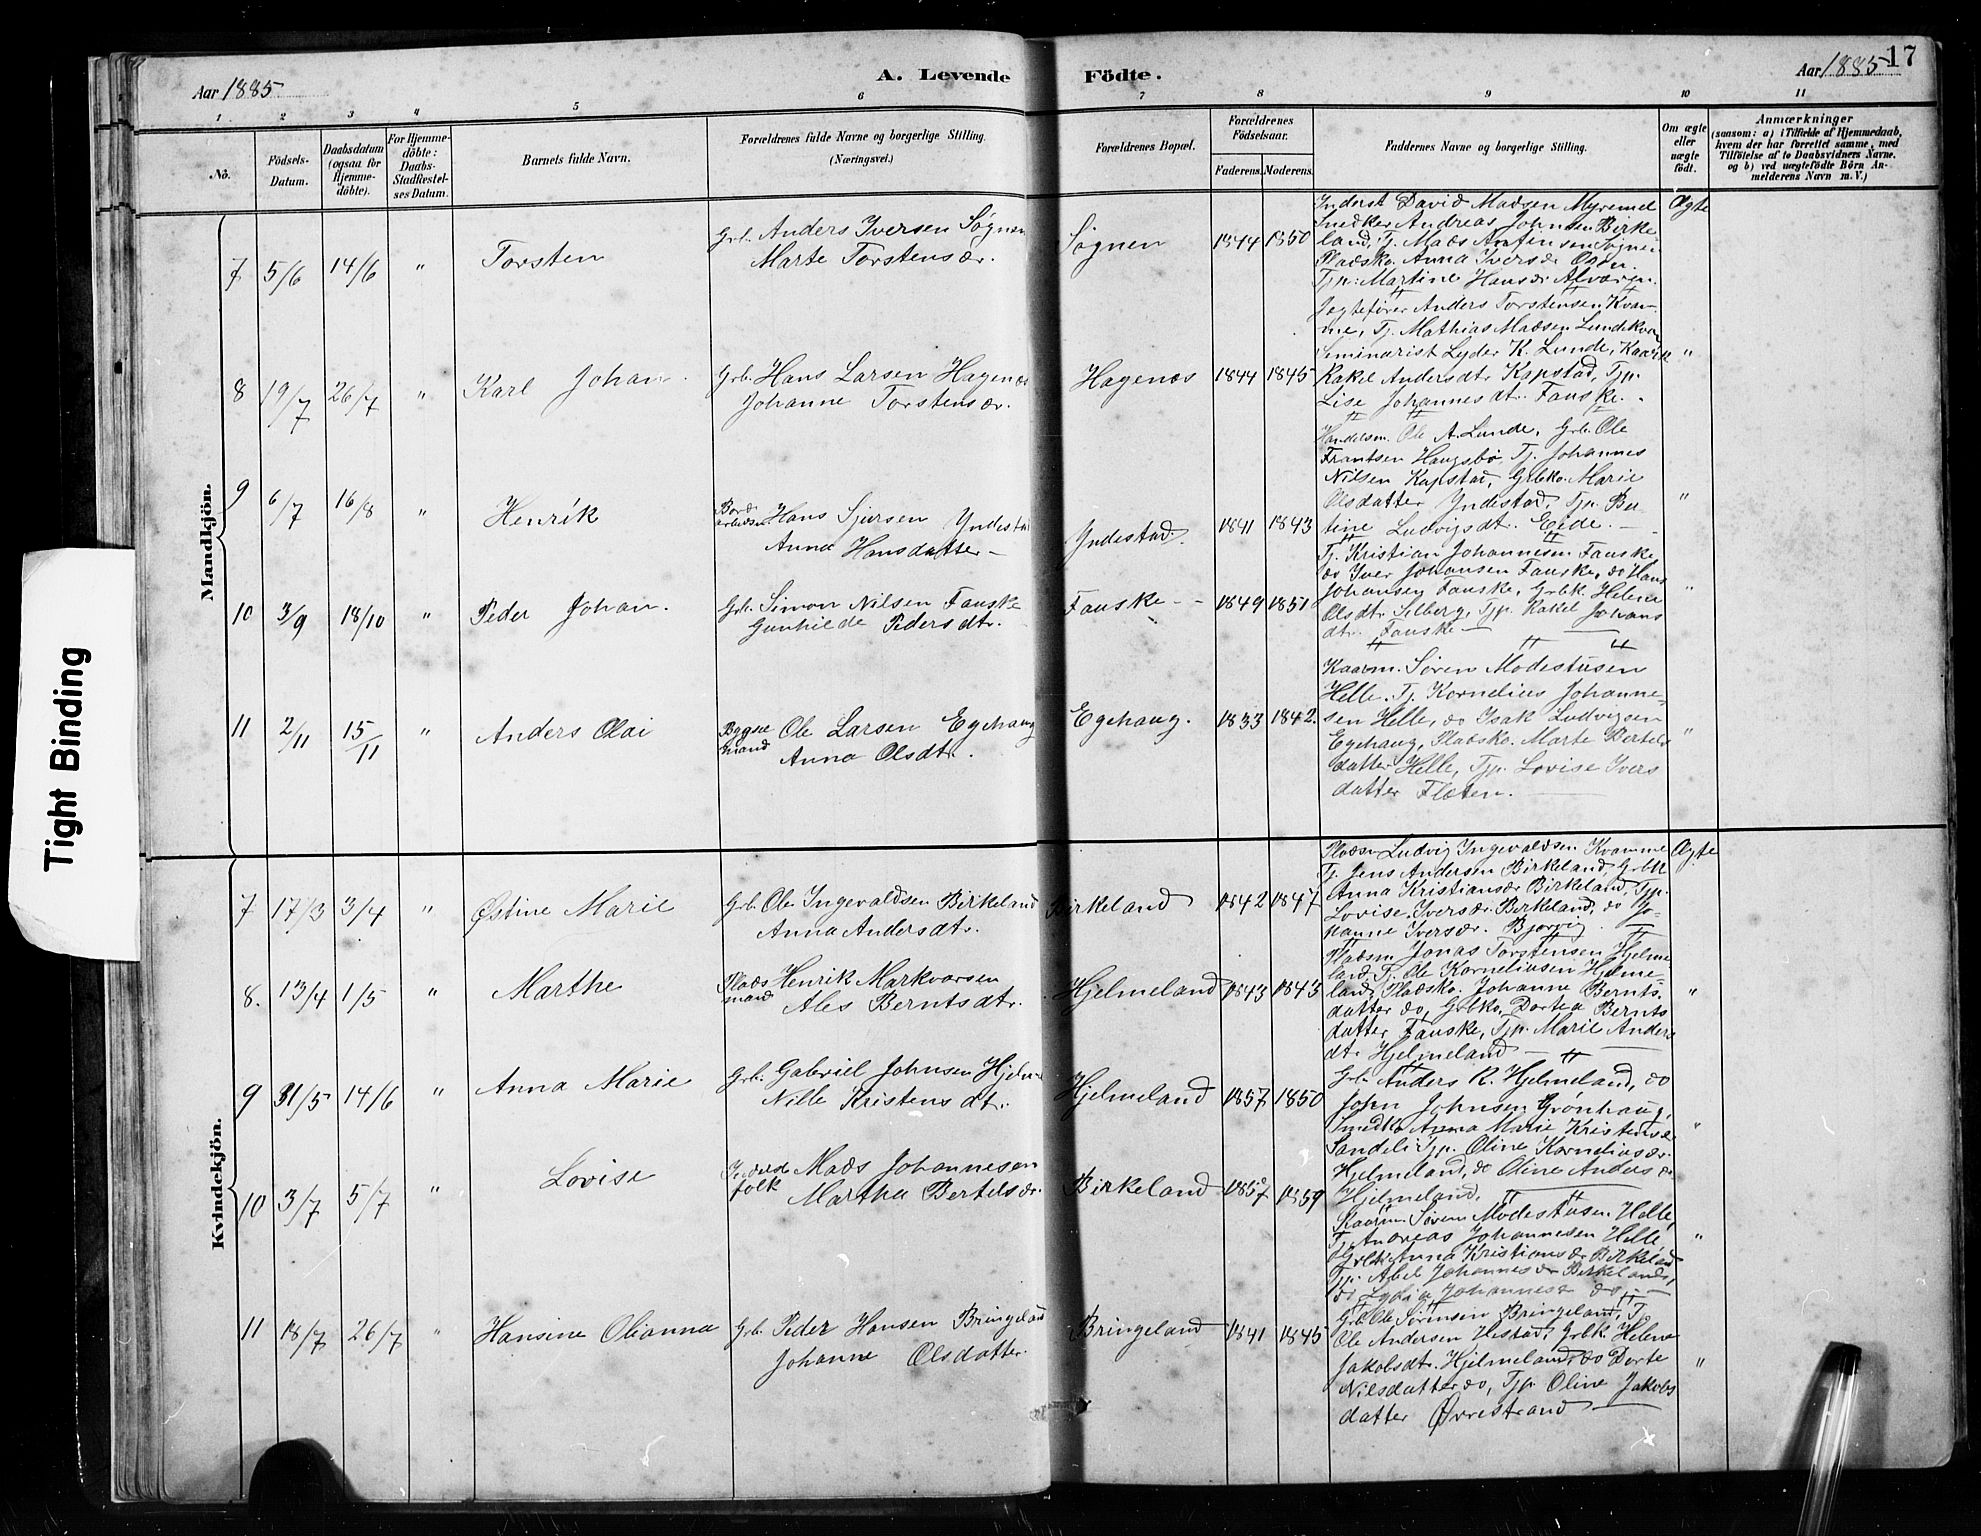 17
Aar 1885
A. Levende Födte.
Aar 1885
1 2 3 4 5 6 7 8 9 10 11
No.
Födsels-Datum.
Daabsdatum (ogsaa for Hjemmedöbte).
For Hjemmedöbte: Daabs-Stadfestelses Datum.
Barnets fulde Navn.
Forældrenes fulde Navne og borgerlige Stilling. (Næringsvei.)
Forældrenes Bopæl.
Forældrenes Födselsaar.
Faderens. Moderens.
Faddernes Navne og borgerlige Stilling.
Om ægte eller uægte födt.
Anmærkninger
(saasom: a) i Tilfælde af Hjemmedaab, hvem der har forrettet samme, med Tilföielse af to Daabsvidners Navne, og b) ved uægtefödte Börn Anmelderens Navn m. V.)
Mandkjön.
7 5/6 14/6 " Torsten
Grb. Anders Iversen Søgnen
Marte Torstensdr.
Søgnen 1844 1850
Inderst David Madsen Myremel
Snedker Andreas Johnsen Birke
land, Tj. Mads Antensen Søgnen
Pladsko. Anna Iversdr Osen.
Tjp. Martine Hansdr Alværen.
Ægte
8 19/7 26/7 " Karl Johan.
Grb. Hans Larsen Hagenæs
Johanne Torstensdr.
Hagenæs 1844 1845
Jegtefører Anders Torstensen Kvam-
me, Tj. Mathias Madsen Lundekvam
Seminarist Lyder K. Lunde, Kaark
Rakel Andersdt. Kapstad, Tjp.
Lise Johannesdt. Fauske.
"
9 6/7 16/8 " Henrik
Hans Sjursen Yndestad
Anna Hansdatter
Yndestad. 1841 1843
Handelsm. Ole A. Lunde, Grb. Ole
Frantsen Haugsbø Tj. Johannes
Nilsen Kapstad, Grbko. Marie
Olsdatter Yndestad, Tjp. Ber
tine Ludvigsdt. Eide.
"
10 3/9 18/10 " Peder Johan.
Grb. Simon Nilsen Fauske
Gunhilde Pedersdtr.
Fauske 1849 1851
Tj. Kristian Johannesen Fauske,
do Iver Johansen Fauske, do Hans
Johansen Fauske, Grbk. Helene
Olsdt. Selberg, Tjp. Rakel Johans
dt. Fauske
"
11 2/11 15/11 " Anders Olai
Bygselmand Ole Larsen Egehaug
Anna Olsdt.
Egehaug. 1833 1842.
Kaarm. Søren Modestusen
Helle. Tj. Kornelius Johanne-
sen Helle, do Isak Ludvigsen
Egehaug, Pladsko. Marte Bertels
datter Helle, Tjp. Lovise Ivers
datter Flæten.
"
Kvindekjön.
7 17/3 3/4 " Østine Marie
Grb. Ole Ingevaldsen Birkeland
Anna Andersdt.
Birkeland 1842 1847
Pladsm Ludvig Ingevaldsen Kvamme
Tj. Jens Andersen Birkeland, Grbk
Anna Kristiansdr Birkeland, Tjp.
Lovise Iversdr. Birkeland, do Jo-
hanne Iversdr. Bjorvig
Ægte
8. 13/4 1/5 " Marthe
Pladsmand Henrik Markvarsen
Ales Berntsdtr.
Hjelmeland 1843 1843
Pladsm Jonas Torstensen Hjelme-
land, Tj. Ole Korneliusen Hjelme-
land, Pladsko. Johanne Bernts-
datter do, Grbko. Dortea Bernts
datter Fauske, Tjp. Marie Anders
dt. Hjelmeland
"
9 31/5 14/6 " Anna Marie
Grb. Gabriel Johnsen Hjelm
Nille Kristensdt.
Hjelmeland 1857 1850
Grb. Anders R. Hjelmeland, do
John Johnsen Grønhaug,
Smedko Anna Marie Kristensdr
Sandeli Tjp. Oline Korneliusdr.
Hjelmeland, do Oline Anders dr
Hjelmeland.
"
10 3/7 5/7 " Lovise
Inderstfolk Mads Johannesen
Martha Bertelsdr.
Birkeland 1857 1859
Kaarm. Søren Modestusen Helle,
Tj. Andreas Johannesen Helle
Grbk. Anna Kristiansdr Birkeland
Tjp. Abel Johannesdr Birkeland,
do Lydia Johannesdr do
"
11 18/7 26/7 " Hansine Olianna
Grb. Peder Hansen Bringeland
Johanne Olsdatter.
Bringeland 1841 1845
Grb Ole Sørensen Bringeland, Tj.
Ole Andersen Hestad, Grbk. Helene
Jakobsdt. Hjelmeland, do Dorte
Nilsdatter do, Tjp. Oline Jakobs
datter Øvrestrand
"
Tight Binding